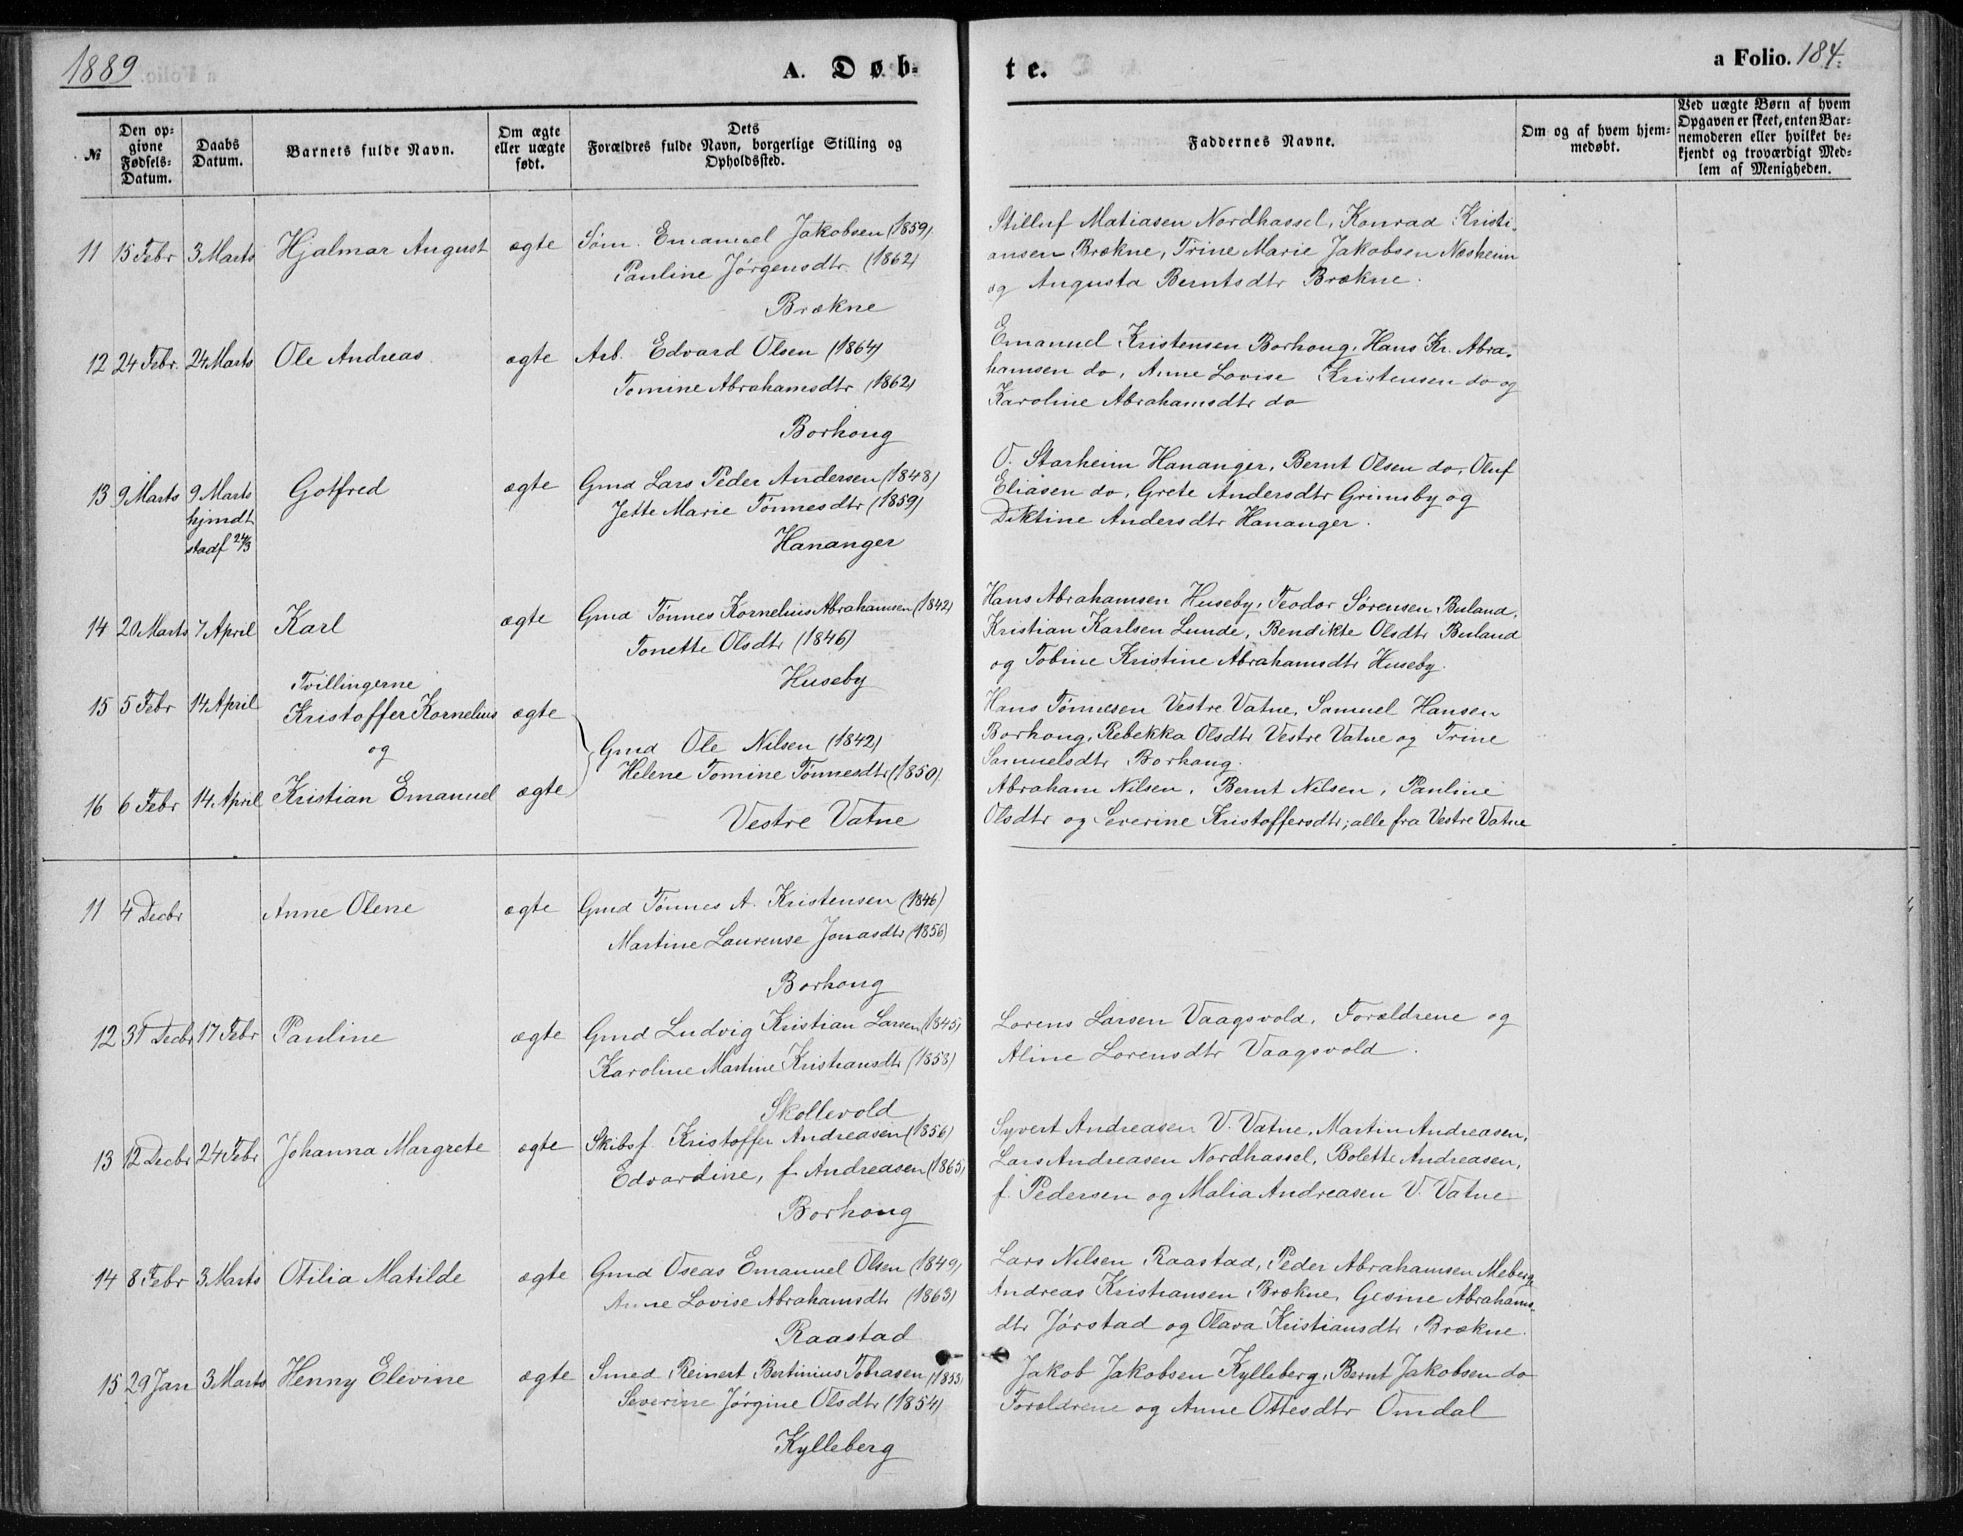 1889
A. Døb-
te.
a Folio. 184.
№
Den op-
givne
Fødsels-
Datum.
Daabs
Datum.
Barnets fulde Navn.
Om ægte
eller uægte
født.
Dets
Forældres fulde Navn, borgerlige Stilling og
Opholdssted.
Faddernes Navne.
Om og af hvem hjem-
medøbt.
Ved uægte Børn af hvem
Opgaven er skeet, enten Bar-
nemoderen eller hvilket be-
kjendt og troværdigt Med-
lem af Menigheden.
11 15 Febr 3 Marts Hjalmar August ægte Søm. Emanuel Jakobsen (1859)
Pauline Jørgensdtr. (1862)
Brækne
Stilluf Matiasen Nordhassel, Konrad Kristi-
ansen Brækne, Trine Marie Jakobsen Næsheim
og Augusta Berntsdtr Brækne.
12 24 Febr. 24 Marts Ole Andreas. ægte Arb. Edvard Olsen (1864)
Tomine Abrahamsdtr (1862)
Borhoug
Emanuel Kristensen Borhoug, Hans Kr. Abra-
hamsen do, Anne Lovise Kristensen do og
Karoline Abrahamsdtr do
13 9 Marts 9 Marts Gotfred ægte Gmd Lars Peder Andersen (1848)
hjmdt
stadf 24/3
Jette Marie Tønnesdtr (1859)
Hananger
O. Starheim Hananger, Bernt Olsen do, Oluf
Eliasen do, Grete Andersdtr Grimsby og
Diktine Andersdtr Hananger.
14 20 Marts 7 April Karl ægte Gmd Tønnes Kornelius Abrahamsen (1842)
Tonette Olsdtr (1846)
Huseby
Hans Abrahamsen Huseby, Teodor Sørensen Buland,
Kristian Karlsen Lunde, Bendikte Olsdtr Buland
og Tobine Kristine Abrahamsdtr Huseby.
Tvillingerne
15 5 Febr 14 April Kristoffer Kornelius ægte
og
Gmd Ole Nilsen (1842)
Helene Tomine Tønnesdtr (1850)
16 6 Febr 14 April Kristian Emanuel ægte
Vestre Vatne
Hans Tønnesen Vestre Vatne, Samuel Hansen
Borhoug, Rebekka Olsdtr Vestre Vatne og Trine
Samuelsdtr Borhoug.
Abraham Nilsen, Bernt Nilsen, Pauline
Olsdtr og Severine Kristoffersdtr; alle fra Vestre Vatne
11 4 Decbr Anne Olene ægte Gmd Tønnes A. Kristensen (1846)
Martine Laurense Jonasdtr (1856)
Borhoug
12 31 Decbr 17 Febr Pauline ægte Gmd Ludvig Kristian Larsen (1845)
Karoline Martine Kristiansdtr (1853)
Skollevold
Lorens Larsen Vaagsvold, Forældrene og
Aline Lorensdtr Vaagsvold.
13 12 Decbr 24 Febr Johanna Margrete ægte Skibsf. Kristoffer Andreasen (1856)
Edvardine, f. Andreasen (1865)
Borhoug
Syvert Andreasen V. Vatne, Martin Andreasen,
Lars Andreasen Nordhassel, Bolette Andreasen,
f. Pedersen og Malia Andreasen V. Vatne
14 8 Febr 3 Marts Otilia Matilde ægte Gmd Oseas Emanuel Olsen (1849)
Anne Lovise Abrahamsdtr (1863)
Raastad
Lars Nilsen Raastad, Peder Abrahamsen Meberg,
Andreas Kristiansen Brækne, Gesine Abrahams-
dtr Jørstad og Olava Kristiansdtr Brækne.
15 29 Jan 3 Marts Henny Elevine ægte Smed Reinert Bertinius Tobiasen (1853)
Severine Jørgine Olsdtr (1854)
Kylleberg
Jakob Jakobsen Kylleberg, Bernt Jakobsen do
Forældrene og Anne Ottesdtr Omdal